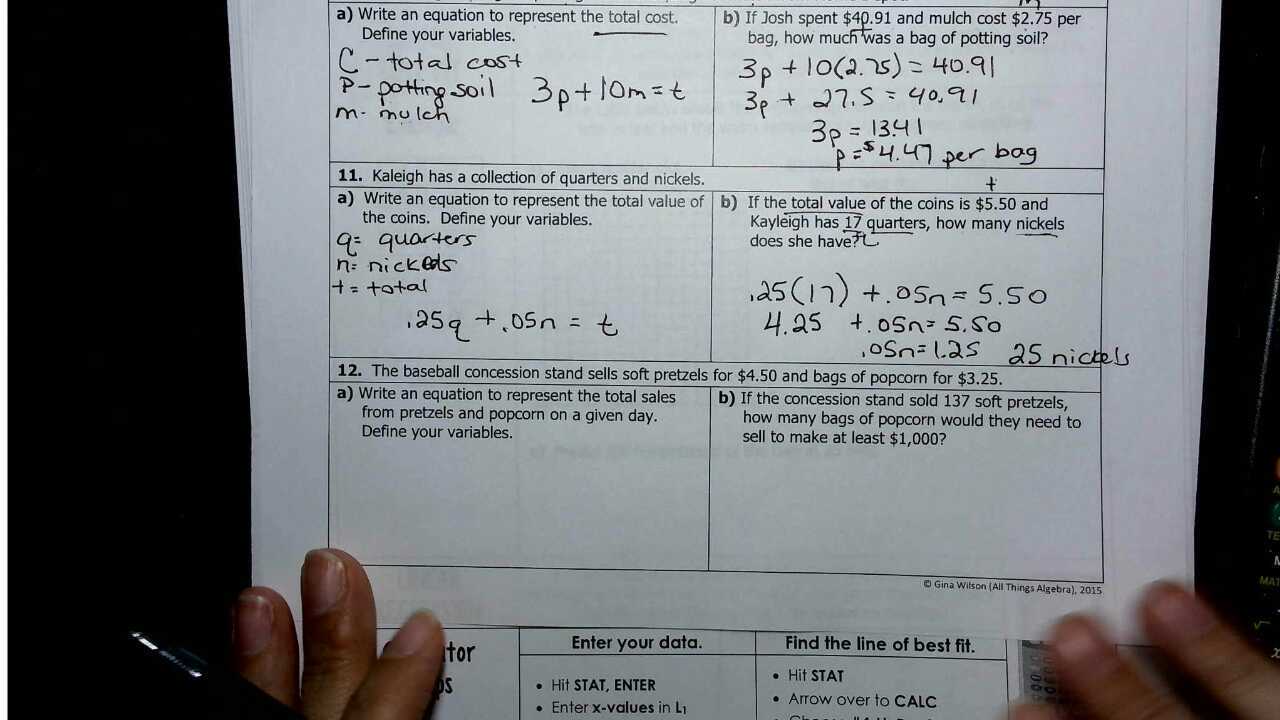 a) Write an equation to represent the total cost.
Define your variables.
C - total cost
P - potting soil
m - mulch
3p + 10m = t
b) If Josh spent $40.91 and mulch cost $2.75 per
bag, how much was a bag of potting soil?
3p + 10(2.75) = 40.91
3p + 27.5 = 40.91
3p = 13.41
p = $4.47 per bag
11. Kaleigh has a collection of quarters and nickels.
a) Write an equation to represent the total value of
the coins. Define your variables.
q = quarters
n = nickels
t = total
.25q + .05n = t
t
b) If the total value of the coins is $5.50 and
Kayleigh has 17 quarters, how many nickels
does she have?
.25(17) + .05n = 5.50
4.25 + .05n = 5.50
.05n = 1.25 25 nickels
12. The baseball concession stand sells soft pretzels for $4.50 and bags of popcorn for $3.25.
a) Write an equation to represent the total sales
from pretzels and popcorn on a given day.
Define your variables.
b) If the concession stand sold 137 soft pretzels,
how many bags of popcorn would they need to
sell to make at least $1,000?
© Gina Wilson (All Things Algebra), 2015
Enter your data.
• Hit STAT, ENTER
• Enter x-values in L1
Find the line of best fit.
• Hit STAT
• Arrow over to CALC